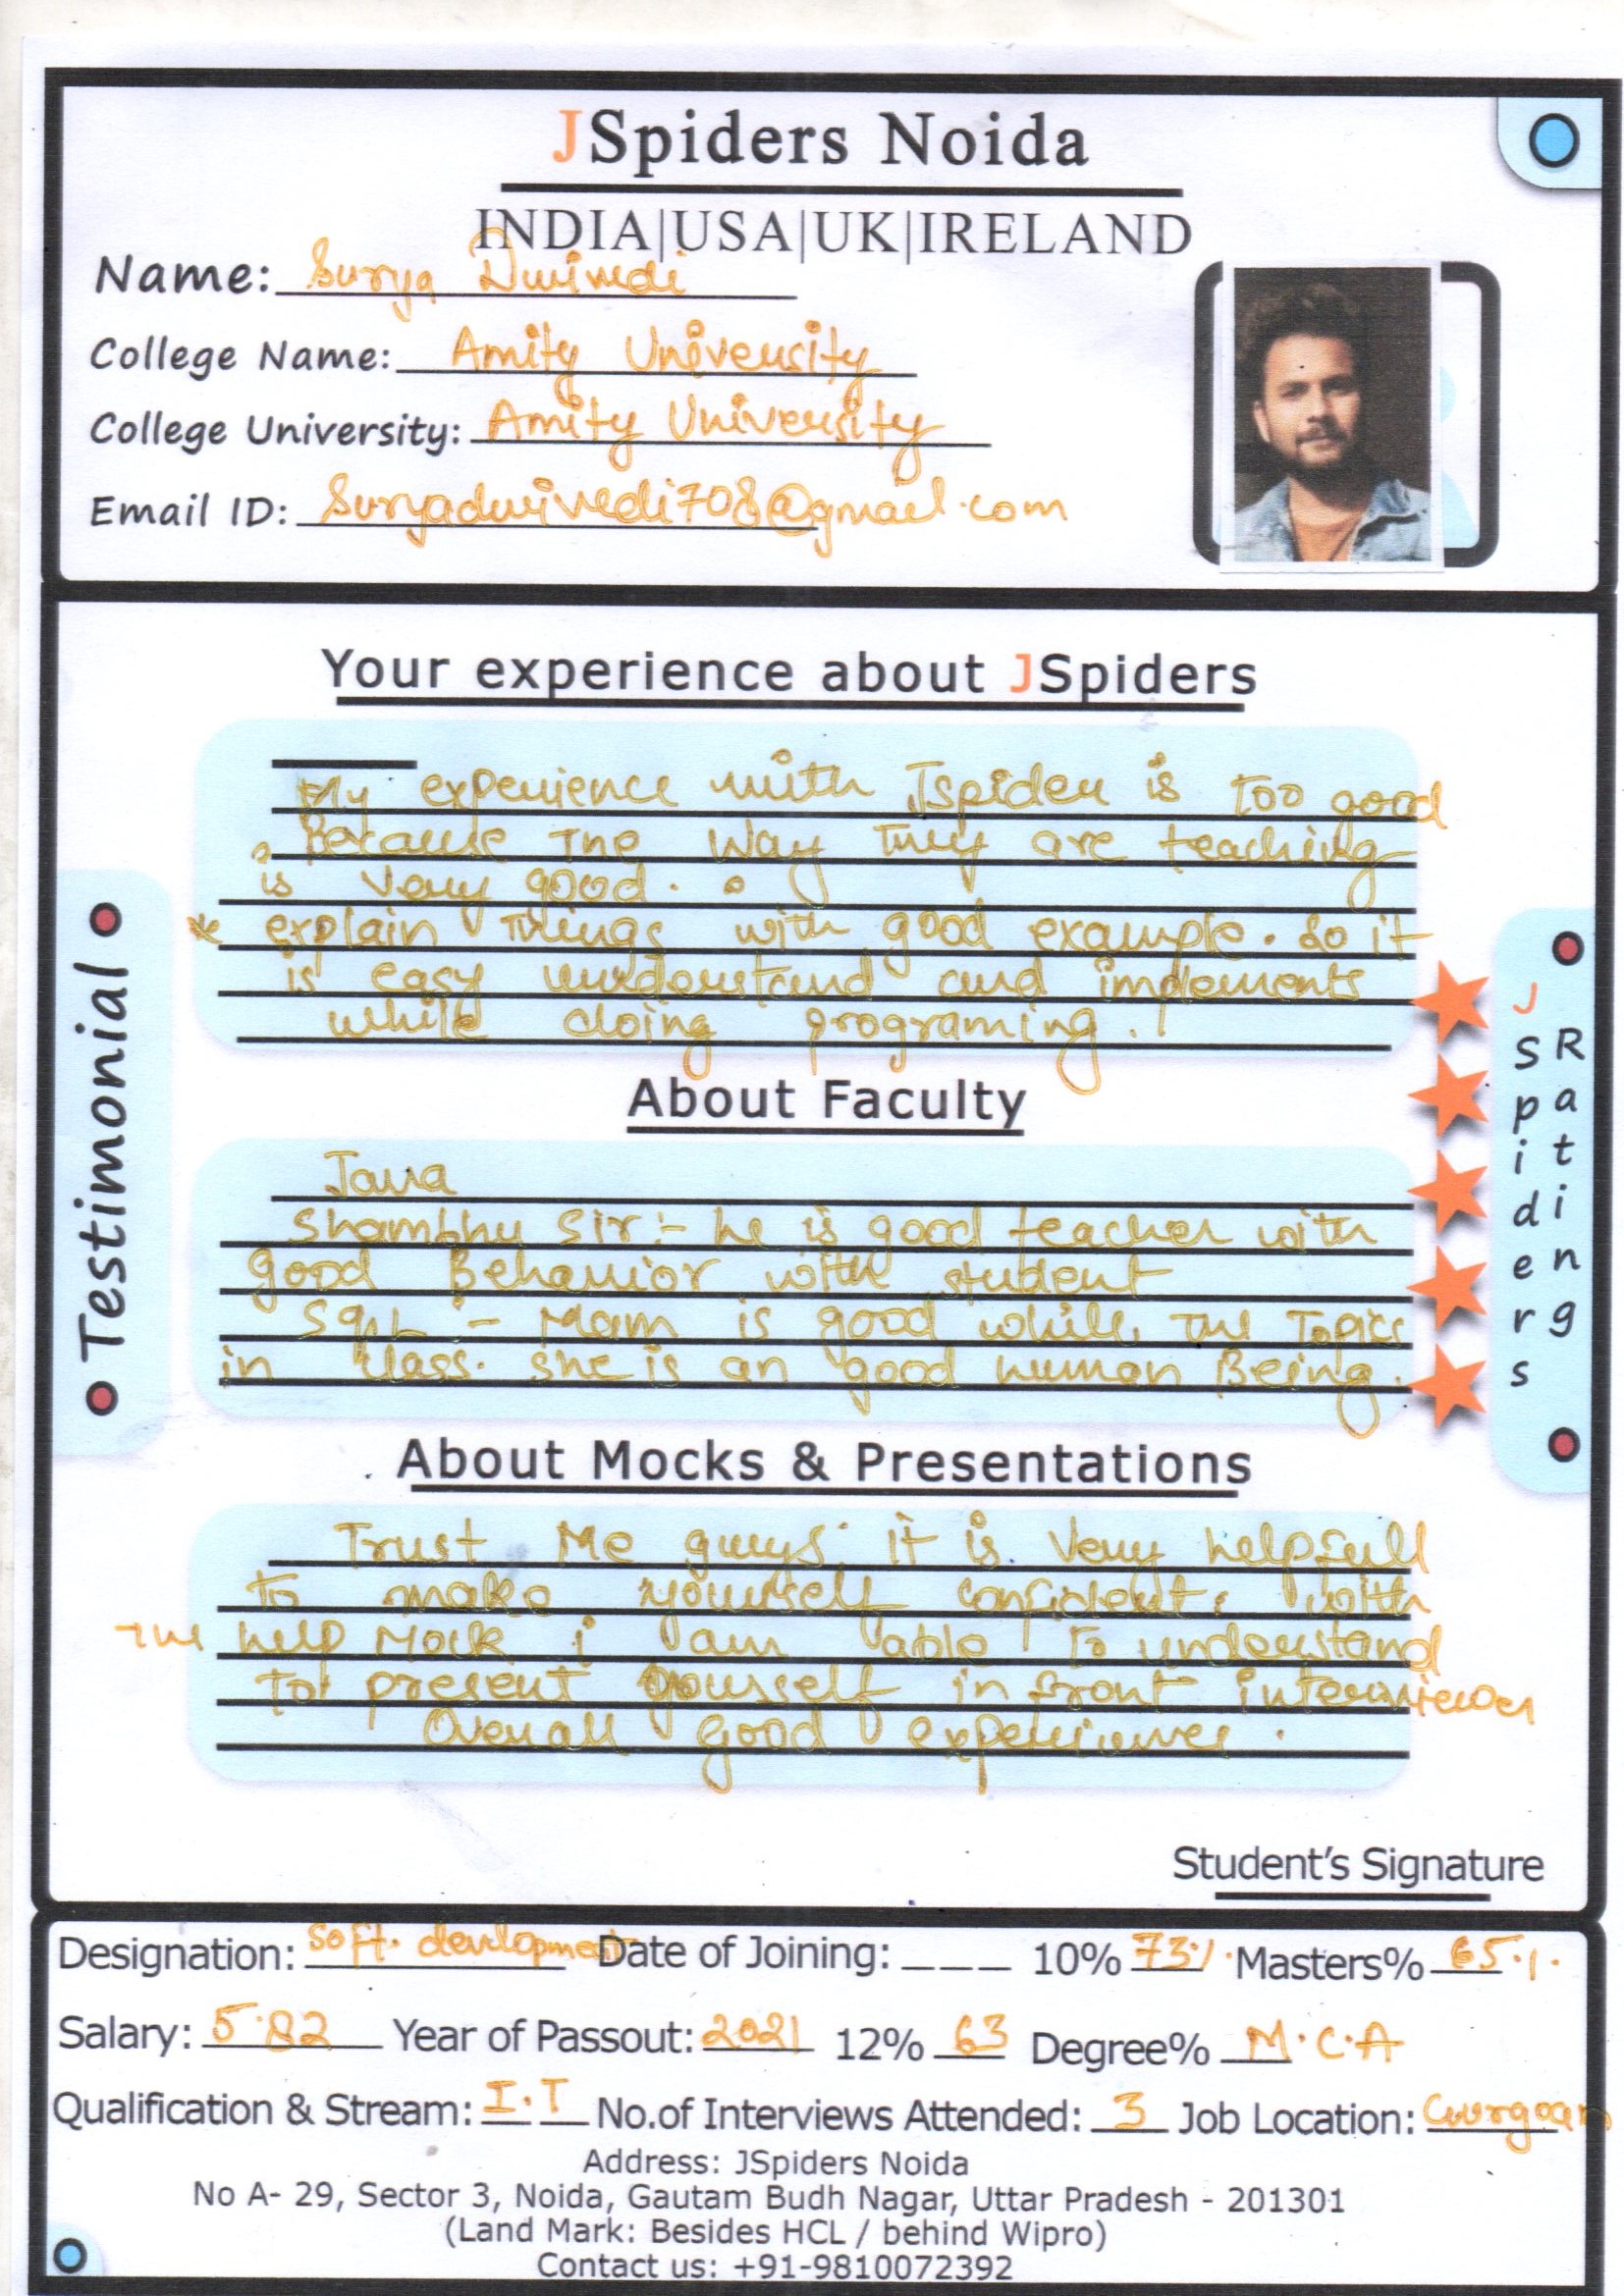 JSpiders Noida
INDIA|USA|UK|IRELAND
Name: Surya Dwivedi
College Name: Amity University
College University: Amity University
Email ID: Suryadwivedi708@gmail.com
Your experience about JSpiders
My experience with Jspider is too good
, Because The Way They are teaching
is very good.
* explain Things with good example. So it
is easy understand and implements
while doing programing.
About Faculty
Java
Shambhu Sir:- he is good teacher with
good Behavior with student
SQL - Mam is good while The Topics
in class. She is an good human Being.
About Mocks & Presentations
Trust Me guys it is Very helpfull
to make yourself confident. with
The help Mock i am able To understand
to present yourself in front interviewer
Overall good experiences.
Testimonial
JSpiders
Ratings
Student's Signature
Designation: Soft. development Date of Joining: _ _ _ 10% 73% Masters% 65%.
Salary: 5.82 Year of Passout: 2021 12% 63 Degree% M.C.A
Qualification & Stream: I.T No.of Interviews Attended: 3 Job Location: Gurgoan
Address: JSpiders Noida
No A- 29, Sector 3, Noida, Gautam Budh Nagar, Uttar Pradesh - 201301
(Land Mark: Besides HCL / behind Wipro)
Contact us: +91-9810072392